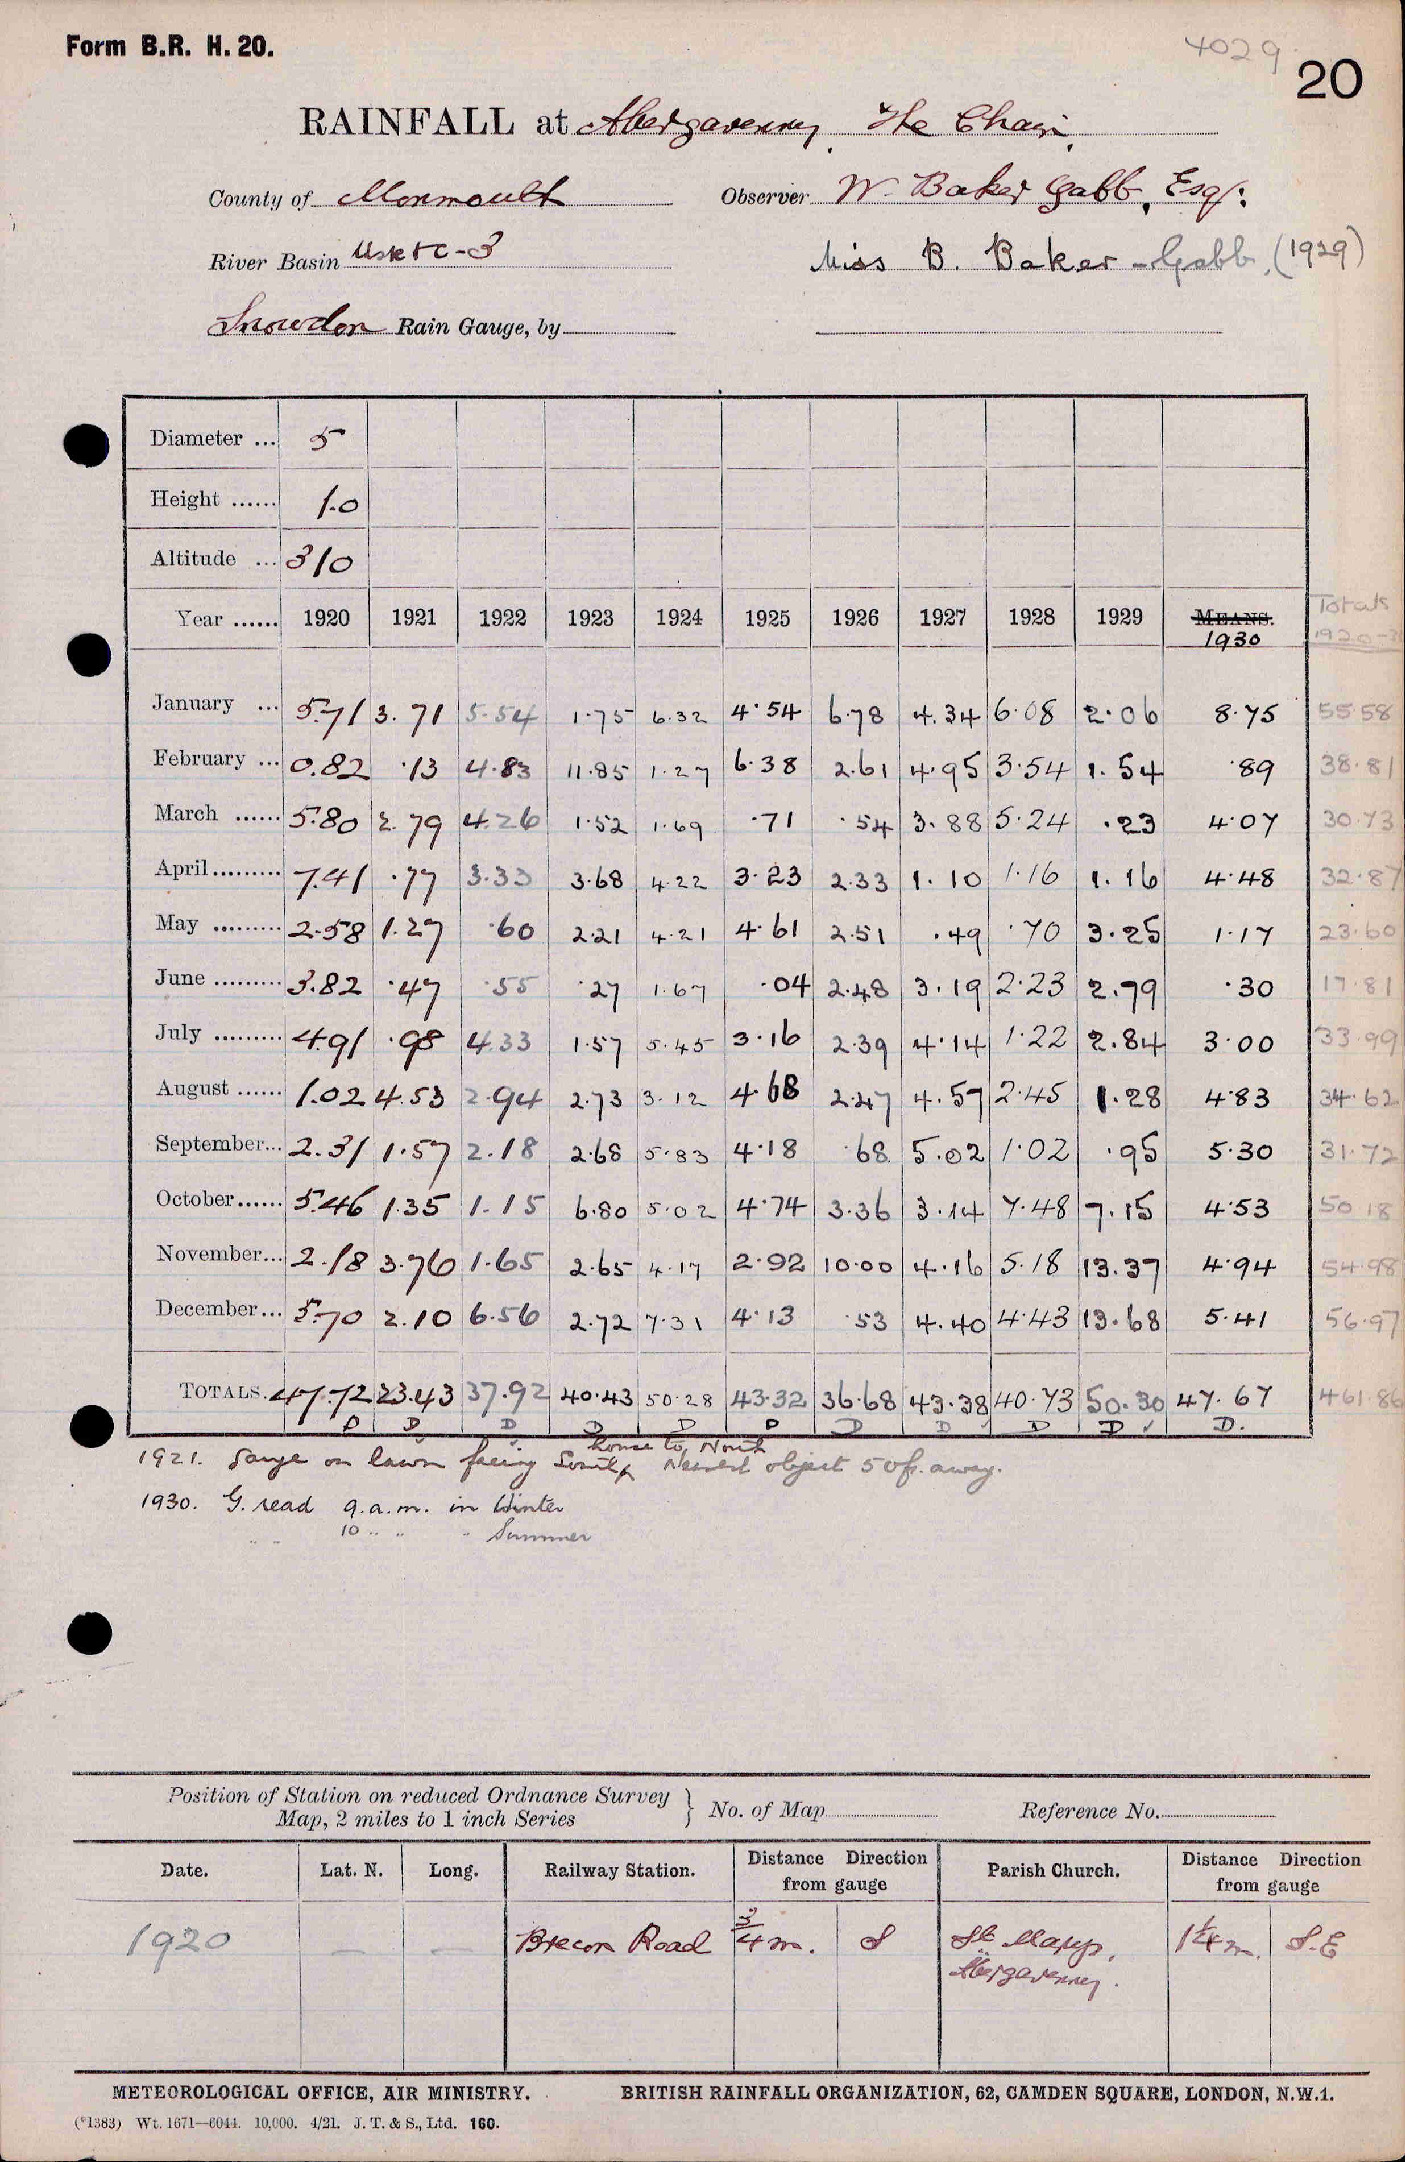 Form B.R. H. 20.
4029
20
RAINFALL at Abergavenny, The Chain,
County of Monmouth Observer W. Baker Gabb, Esq:
River Basin Usk &c - 3 Miss B. Baker-Gabb, (1929)
Snowdon Rain Gauge, by
Diameter ... 5
Height ...... 1.0
Altitude ... 310
Year ...... 1920 1921 1922 1923 1924 1925 1926 1927 1928 1929 MEANS. 1930 Totals 1920-
January ... 5.71 3.71 5.54 1.75 6.32 4.54 6.78 4.34 6.08 2.06 8.75 55.58
February ... 0.82 .13 4.83 11.85 1.27 6.38 2.61 4.95 3.54 1.54 .89 38.81
March ...... 5.80 2.79 4.26 1.52 1.69 .71 .54 3.88 5.24 .23 4.07 30.73
April ......... 7.41 .77 3.33 3.68 4.22 3.23 2.33 1.10 1.16 1.16 4.48 32.87
May ......... 2.58 1.27 .60 2.21 4.21 4.61 2.51 .49 .70 3.25 1.17 23.60
June ......... 3.82 .47 .55 .27 1.67 .04 2.48 3.19 2.23 2.79 .30 17.81
July ......... 4.91 .98 4.33 1.57 5.45 3.16 2.39 4.14 1.22 2.84 3.00 33.99
August ...... 1.02 4.53 2.94 2.73 3.12 4.68 2.47 4.57 2.45 1.28 4.83 34.62
September... 2.31 1.57 2.18 2.68 5.83 4.18 .68 5.02 1.02 .95 5.30 31.72
October...... 5.46 1.35 1.15 6.80 5.02 4.74 3.36 3.14 7.48 7.15 4.53 50.18
November... 2.18 3.76 1.65 2.65 4.17 2.92 10.00 4.16 5.18 13.37 4.94 54.98
December... 5.70 2.10 6.56 2.72 7.31 4.13 .53 4.40 4.43 13.68 5.41 56.97
TOTALS. 47.72 23.43 37.92 40.43 50.28 43.32 36.68 43.38 40.73 50.30 47.67 461.86
D D D D D D D D D D D.
house to North
1921. Gauge on lawn facing South, Nearest object 50 ft. away.
1930. G. read 9. a.m. in Winter
" " 10 " " " Summer
Position of Station on reduced Ordnance Survey
Map, 2 miles to 1 inch Series } No. of Map Reference No.
Date. Lat. N. Long. Railway Station. Distance Direction from gauge Parish Church. Distance Direction from gauge
1920 — — Brecon Road 3/4 m. S St. Marys, Abergavenny. 1 1/4 m. S.E
METEOROLOGICAL OFFICE, AIR MINISTRY. BRITISH RAINFALL ORGANIZATION, 62, CAMDEN SQUARE, LONDON, N.W.1.
(*1383) Wt. 1671—6044. 10,000. 4/21. J. T. & S., Ltd. 160.